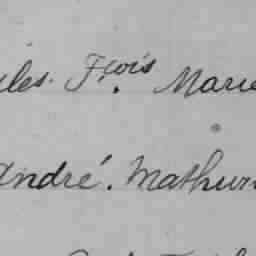 ules. Fçois Marie
André. Mathur